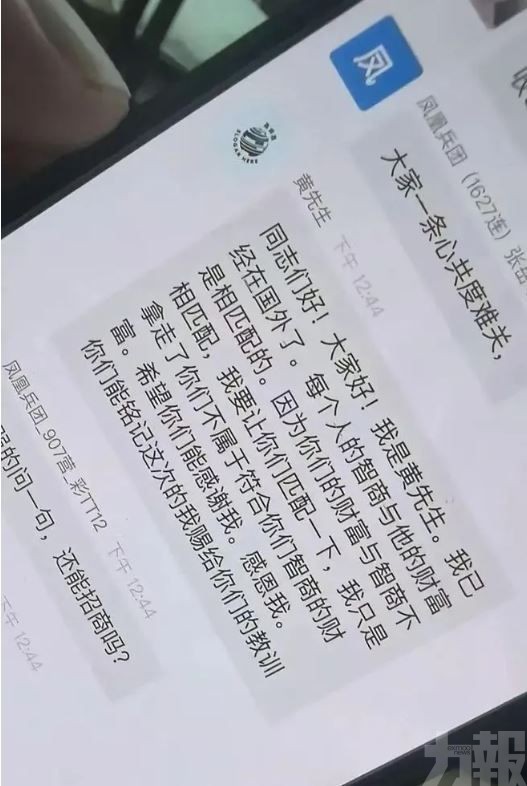 凤
凤凰兵团（1627连）张
大家一条心共度难关，
黄先生 下午 12:44
同志们好！大家好！我是黄先生。我已
经在国外了。每个人的智商与他的财富
是相匹配的。因为你们的财富与智商不
相匹配，我要让你们匹配一下，我只是
拿走了你们不属于符合你们智商的财
富。希望你们能感谢我。感恩我。
你们能铭记这次的我赐给你们的教训
凤凰兵团_907营_彩TT12 下午 12:44
的问一句，还能招商吗？
下午 12:44
力報